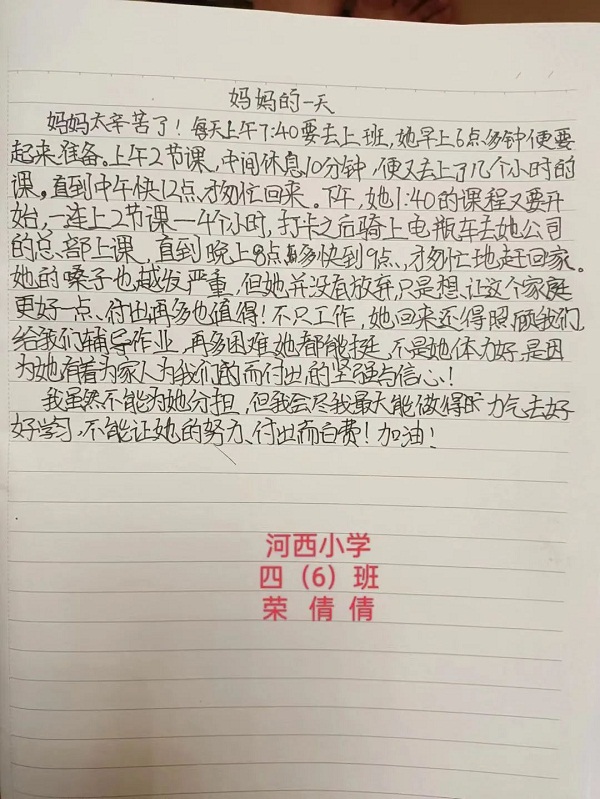 妈妈的一天
妈妈太辛苦了！每天上午7:40要去上班，她早上6点多钟便要
起来准备。上午2节课，中间休息10分钟，便又去上了几个小时的
课。直到中午快12点，才匆忙回来。下午，她1:40的课程又要开
始，一连上2节课—4个小时，打卡之后骑上电瓶车去她公司
的总部上课，直到晚上8点多快到9点，才匆忙地赶回家。
她的嗓子也越发严重，但她并没有放弃，只是想让这个家庭
更好一点、付出再多也值得！不只工作，她回来还得照顾我们，
给我们辅导作业，再多困难她都能挺，不是她体力好，是因
为她有着为家人为我们而付出的坚强与信心！
我虽然不能为她分担，但我会尽我最大能做得的力气去好
好学习，不能让她的努力、付出而白费！加油！
河西小学
四（6）班
荣倩倩